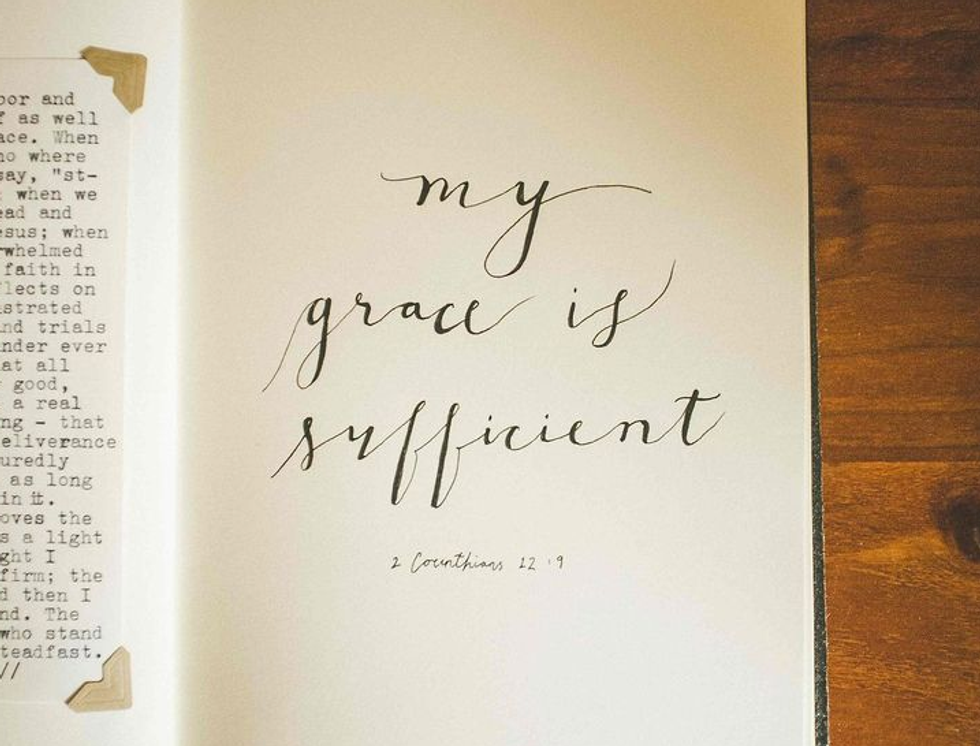 oor and
as well
ace. When
no where
say, "st-
when we
ead and
esus; when
rwhelmed
faith in
flects on
strated
nd trials
nder ever
at all
good,
a real
ng - that
eliverance
uredly
as long
in it.
oves the
s a light
ght I
firm; the
d then I
nd. The
who stand
teadfast.
//
my
grace is
sufficient
2 Corinthians 12:9